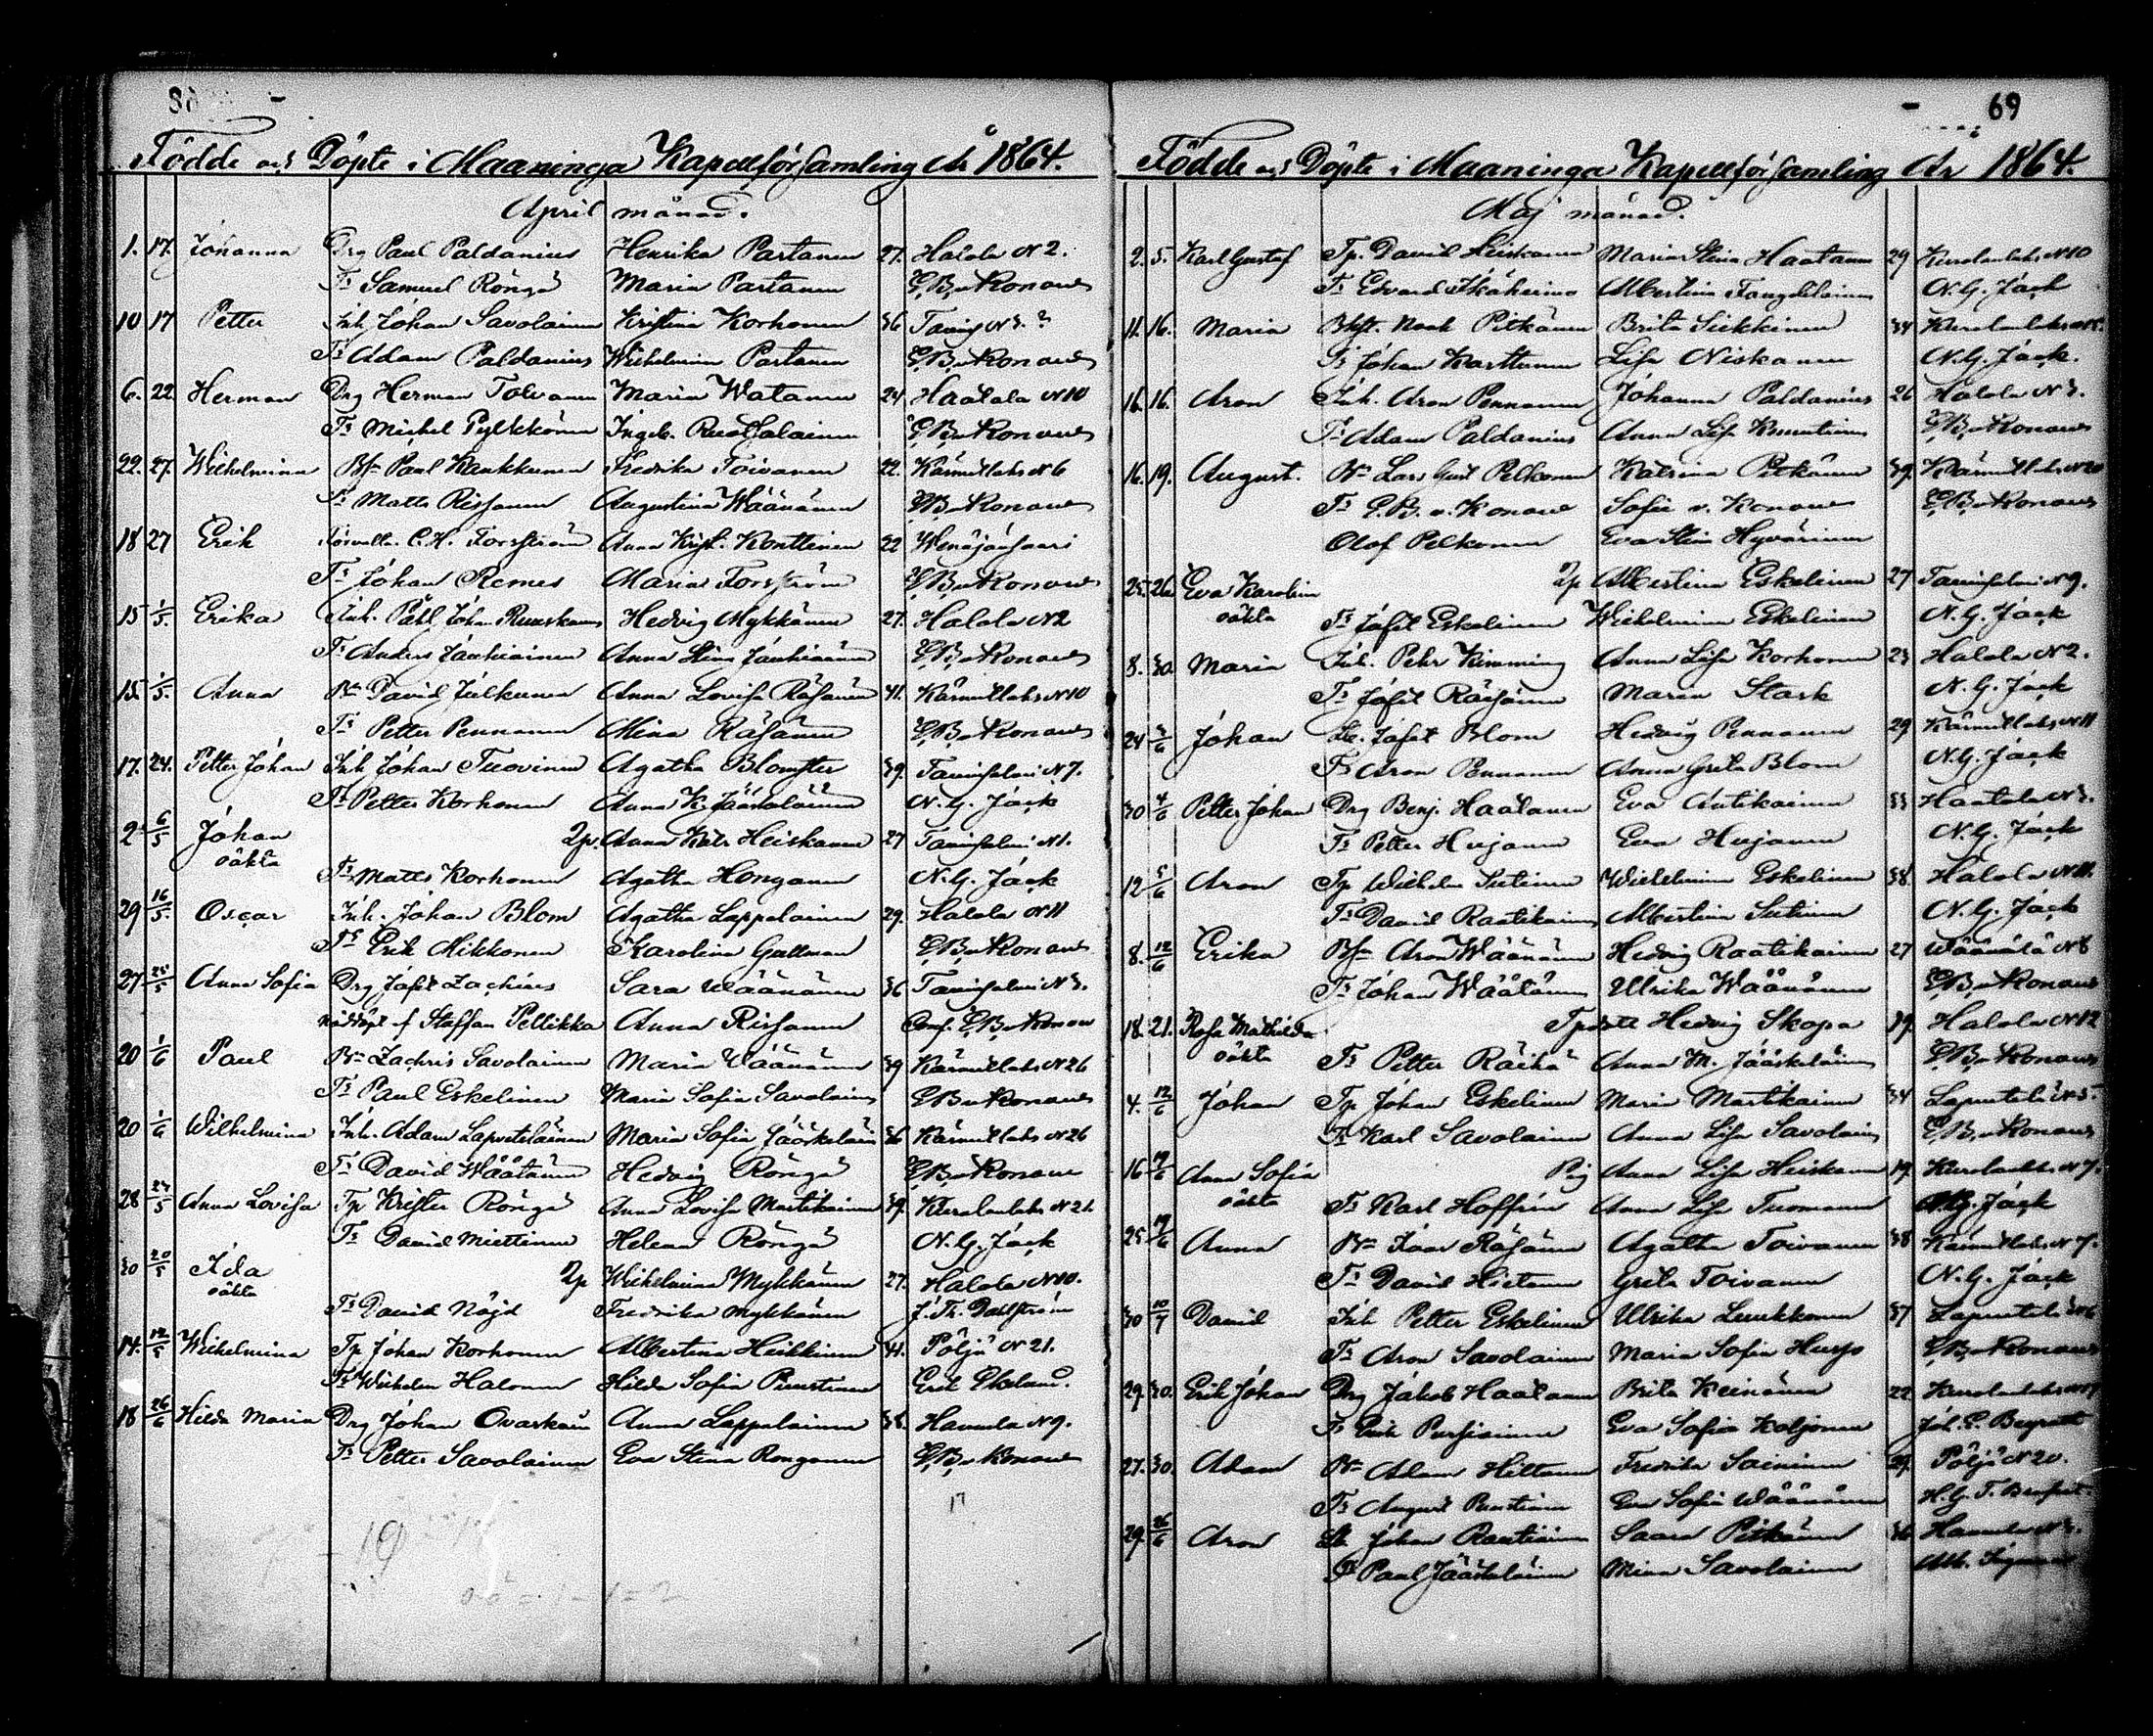 68
Födde och Döpte i Maaninga Kapellförsamling År 1864.
April månad.
1. 17. Johanna Drg Paul Paldanius Henrika Partanen 27. Halola N 2.
Fs Samuel Röngä Maria Partanen E.B.v.Konow
10 17 Petter Inh Johan Savolainen Kristina Korhonen 36 N 3. ?
Fs Adam Paldanius Wilhelmina Partanen E.B.v.Konow
6. 22 Herman Drg Herman Tolvanen Maria Watanen 24 Haatala N 10
Fs Michel Pylkkönen Ingeb. Ruotsalainen E.B.v.Konow
22. 27. Wilhelmina Bfr Paul Kaukkunen Fredrika Toivanen 22. Kärmetlaks N 6
Fs Matts Rissanen Augustina Wäänänen E.B.v.Konow
18 27 Erik C.H. Forsström Anna Krist. Konttinen 22 Wenäjänsaari
Fs Johan Remes Maria Forsström E.B.v.Konow
15 1/5. Erika Inh. Påhl Johan Ruuskanen Hedvig Mykkänen 27. Halola N 2
Fs Anders Jauhiainen Anna Stina Jauhiainen E.B.v.Konow
15. 1/5. Anna Bn David Julkunen Anna Lovisa Räsänen 41. Kärmetlaks N 10
Fs Petter Pennanen Mina Räsänen E.B.v.Konow
17. 24. Petter Johan Inh Johan Tuovinen Agatha Blomster 39. Tavinsalmi N 7.
Fs Petter Korhonen Anna K. Jääskeläinen N.G. Jack
2 6/5 Johan 2p. Anna Katr Heiskanen 27 Tavinsalmi N 1.
oäkta
Fs Matts Korhonen Agatha Honganen N.G. Jack
29 16/5. Oscar Inh. Johan Blom Agatha Lappalainen 29. Halola N 11
Fs Erik Mikkonen Karolina Gullman E.B.v.Konow
27 25/5 Anna Sofia Drg Jafet Zachæus Sara Wäänänen 36 Tavinsalmi N 3.
nöddöpt af Staffan Pellikka Anna Rissanen Conf. E.B.v.Konow
20 1/6 Paul Bn Zachris Savolainen Maria Wäänänen 39 Kärmetlaks N 26
Fs Paul Eskelinen Maria Sofia Savolainen E.B.v.Konow
20 1/6 Wilhelmina Inh. Adam Lapveteläinen Maria Sofia Jääskeläinen 36 Kärmetlaks N 26
Fs David Wäätänen Hedvig Röngä E.B.v.Konow
28 24/5 Anna Lovisa Tp Krister Röngä Anna Lovisa Martikainen 39. Kurolanlaks N 21.
Fs David Miettinen Helena Röngä N.G. Jack
30 20/5 Ida 2p Wilhelmina Mykkänen 27. Halola N 10.
oäkta
Fs David Nöjd Fredrika Mykkänen J. Th. Dahlström
14. 12/5 Wilhelmina Tp Johan Korhonen Albertina Heikkinen 41. Pöljä N 21.
Fs Wilhelm Halonen Hilda Sofia Puustinen Erik Ekelund.
18 26/6 Hilda Maria Drg Johan Ovaskain Anna Lappalainen 38. Hamula N 9.
Fs Petter Savolainen Eva Stina Ronganen E.B.v.Konow
17
19
69
Födde och Döpte i Maaninga Kapellförsamling År 1864.
Maj månad.
2. 5. Karl Gustaf Tp. David Heiskanen Maria Stina Haatanen 29 Kurolanlaks N 10
Fs Edvard Albertina N.G. Jack
11. 16. Maria Bhft. Noak Pitkänen Brita Siekkinen 34 Kurolanlaks
Fs Johan Karttunen Lisa Niskanen N.G. Jack.
16. 16. Aron Inh. Aron Pennanen Johanna Paldanius 26 Halola N 3.
Fs Adam Paldanius Anna Lisa E.B.v.Konow
16. 19. August. Bn Lars Gust Pelkonen Katrina Pitkänen 39. Kärmetlaks N 20
Fs E.B. v. Konow Sofie v. Konow E.B.v.Konow
Olof Pelkonen Eva Stina Hyvärinen
25. 26. Eva Karolina 2p Albertina Eskelinen 27 Tavinsalmi N 9.
oäkta Fs Jafet Eskelinen Wilhelmina Eskelinen N.G. Jack
8. 30. Maria Inh. Pehr Kimming Anna Lisa Korhonen 23 Halola N 2.
Fs Jafet Räisänen Maria Stark N.G. Jack
24 Johan Jafet Blom Hedvig Pennanen 29 Kärmetlaks N 11
Fs Aron Pennanen Anna Greta Blom N.G. Jack
30 4/6 Petter Johan Drg Benj. Haatanen Eva Antikainen 33 Haatala N 3.
Fs Petter Hujanen Eva Hujanen N.G. Jack
12 5/6 Aron Tp Wilhelm Sutinen Wilhelmina Eskelinen 38. Halola N 11.
Fs David Raatikainen Albertina Sutinen N.G. Jack
8. 12/6 Erika Bfr Aron Wäänänen Hedvig Raatikainen 27 Wäänälä N 8
Fs Johan Wäätänen Ulrika Wäänänen E.B.v.Konow
18. 21. Rosa Mathilda Hedvig Skopa 39. Halola N 12
oäkta Fs Petter Räihä Anna M. Jääskeläinen E.B.v.Konow
4. 12/6 Johan Tp Johan Eskelinen Maria Martikainen 34 Lapvetelä N 5.
Fs Karl Savolainen Anna Lisa Savolainen E.B.v.Konow
16 19/6 Anna Sofia Pig Anna Lisa Heiskanen 19. Kurolanlaks N 7.
oäkta Fs Karl Hoffrén Anna Lisa Tuomanen N.G. Jack
25. 19/6 Anna Bn Ivar Räsänen Agatha Toivanen 38 Kärmetlaks N 7.
Fs David Hietanen Greta Toivanen N.G. Jack
30 10/7 David Inh Petter Eskelinen Ulrika Luukkonen 37 Lapvetelä N 6
Fs Aron Savolainen Maria Sofia E.B.v.Konow
29. 30. Erik Johan Drg Jakob Haatanen Brita Keinänen 22 Kurolanlaks
Fs Erik Pursiainen Eva Sofia Koljonen Joh. E. Bergroth
27. 30. Adam Bn Adam Hiltunen Fredrika Saininen 29. Pöljä N 20.
Fs August Puustinen Eva Sofia Wäänänen
29. 26/6 Aron Johan Rautiainen Saara Pitkänen 36 Hamula N 3.
Fs Paul Jääskeläinen Mina Savolainen